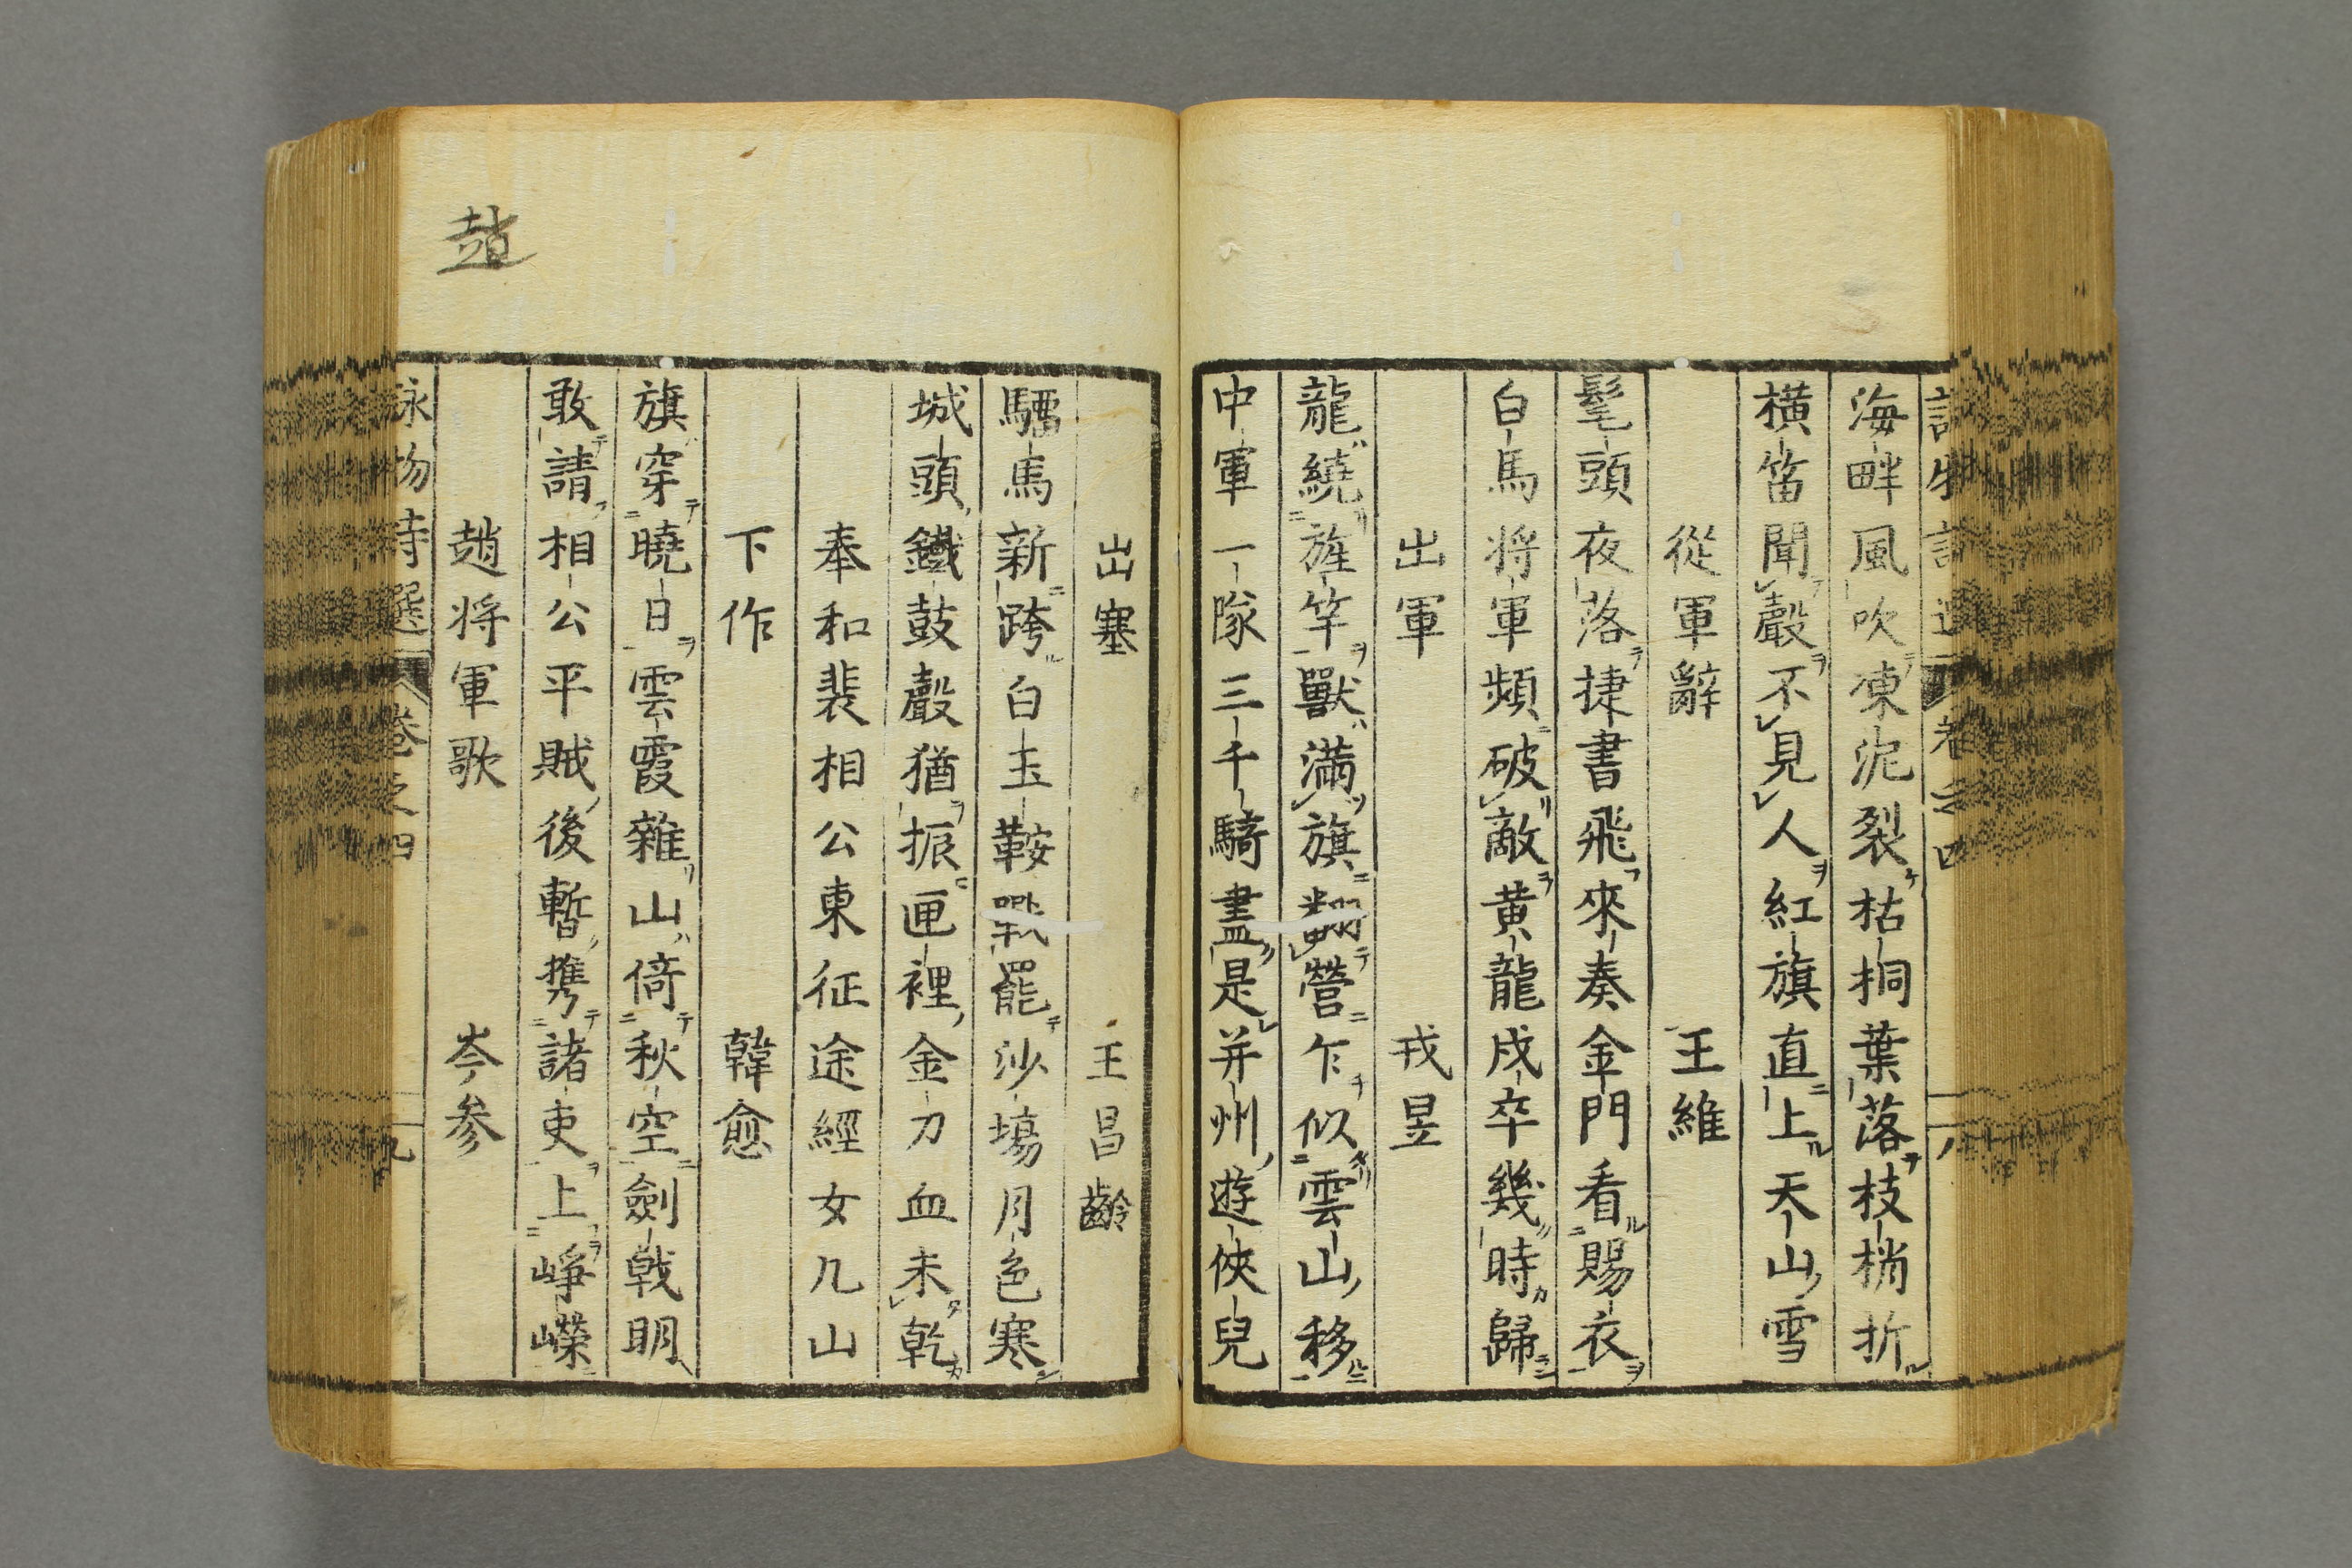 海畔風吹凍泥裂枯桐葉落枝梢折
横笛聞聲不見人紅旗直上天山雪
從軍辭 王維
髦頭夜落捷書飛來奏金門看賜衣
白馬将軍頻破敵黄龍戍卒幾時歸
出軍 戎昱
龍繞旌竿獸滿旗翻營乍似雲山移
中軍一隊三千騎盡是并州遊俠兒
出塞 王昌齡
驑馬新跨白玉鞍戰罷沙塲月色寒
城頭鐵鼓聲猶振匣裡金刀血未乾
奉和裴相公東征途經女几山
下作 韓愈
旗穿曉日雲霞雜山倚秋空劍戟明
敢請相公平賊後暫携諸吏上崢嶸
趙将軍歌 岑参
詠物詩選 卷之四 九
趙